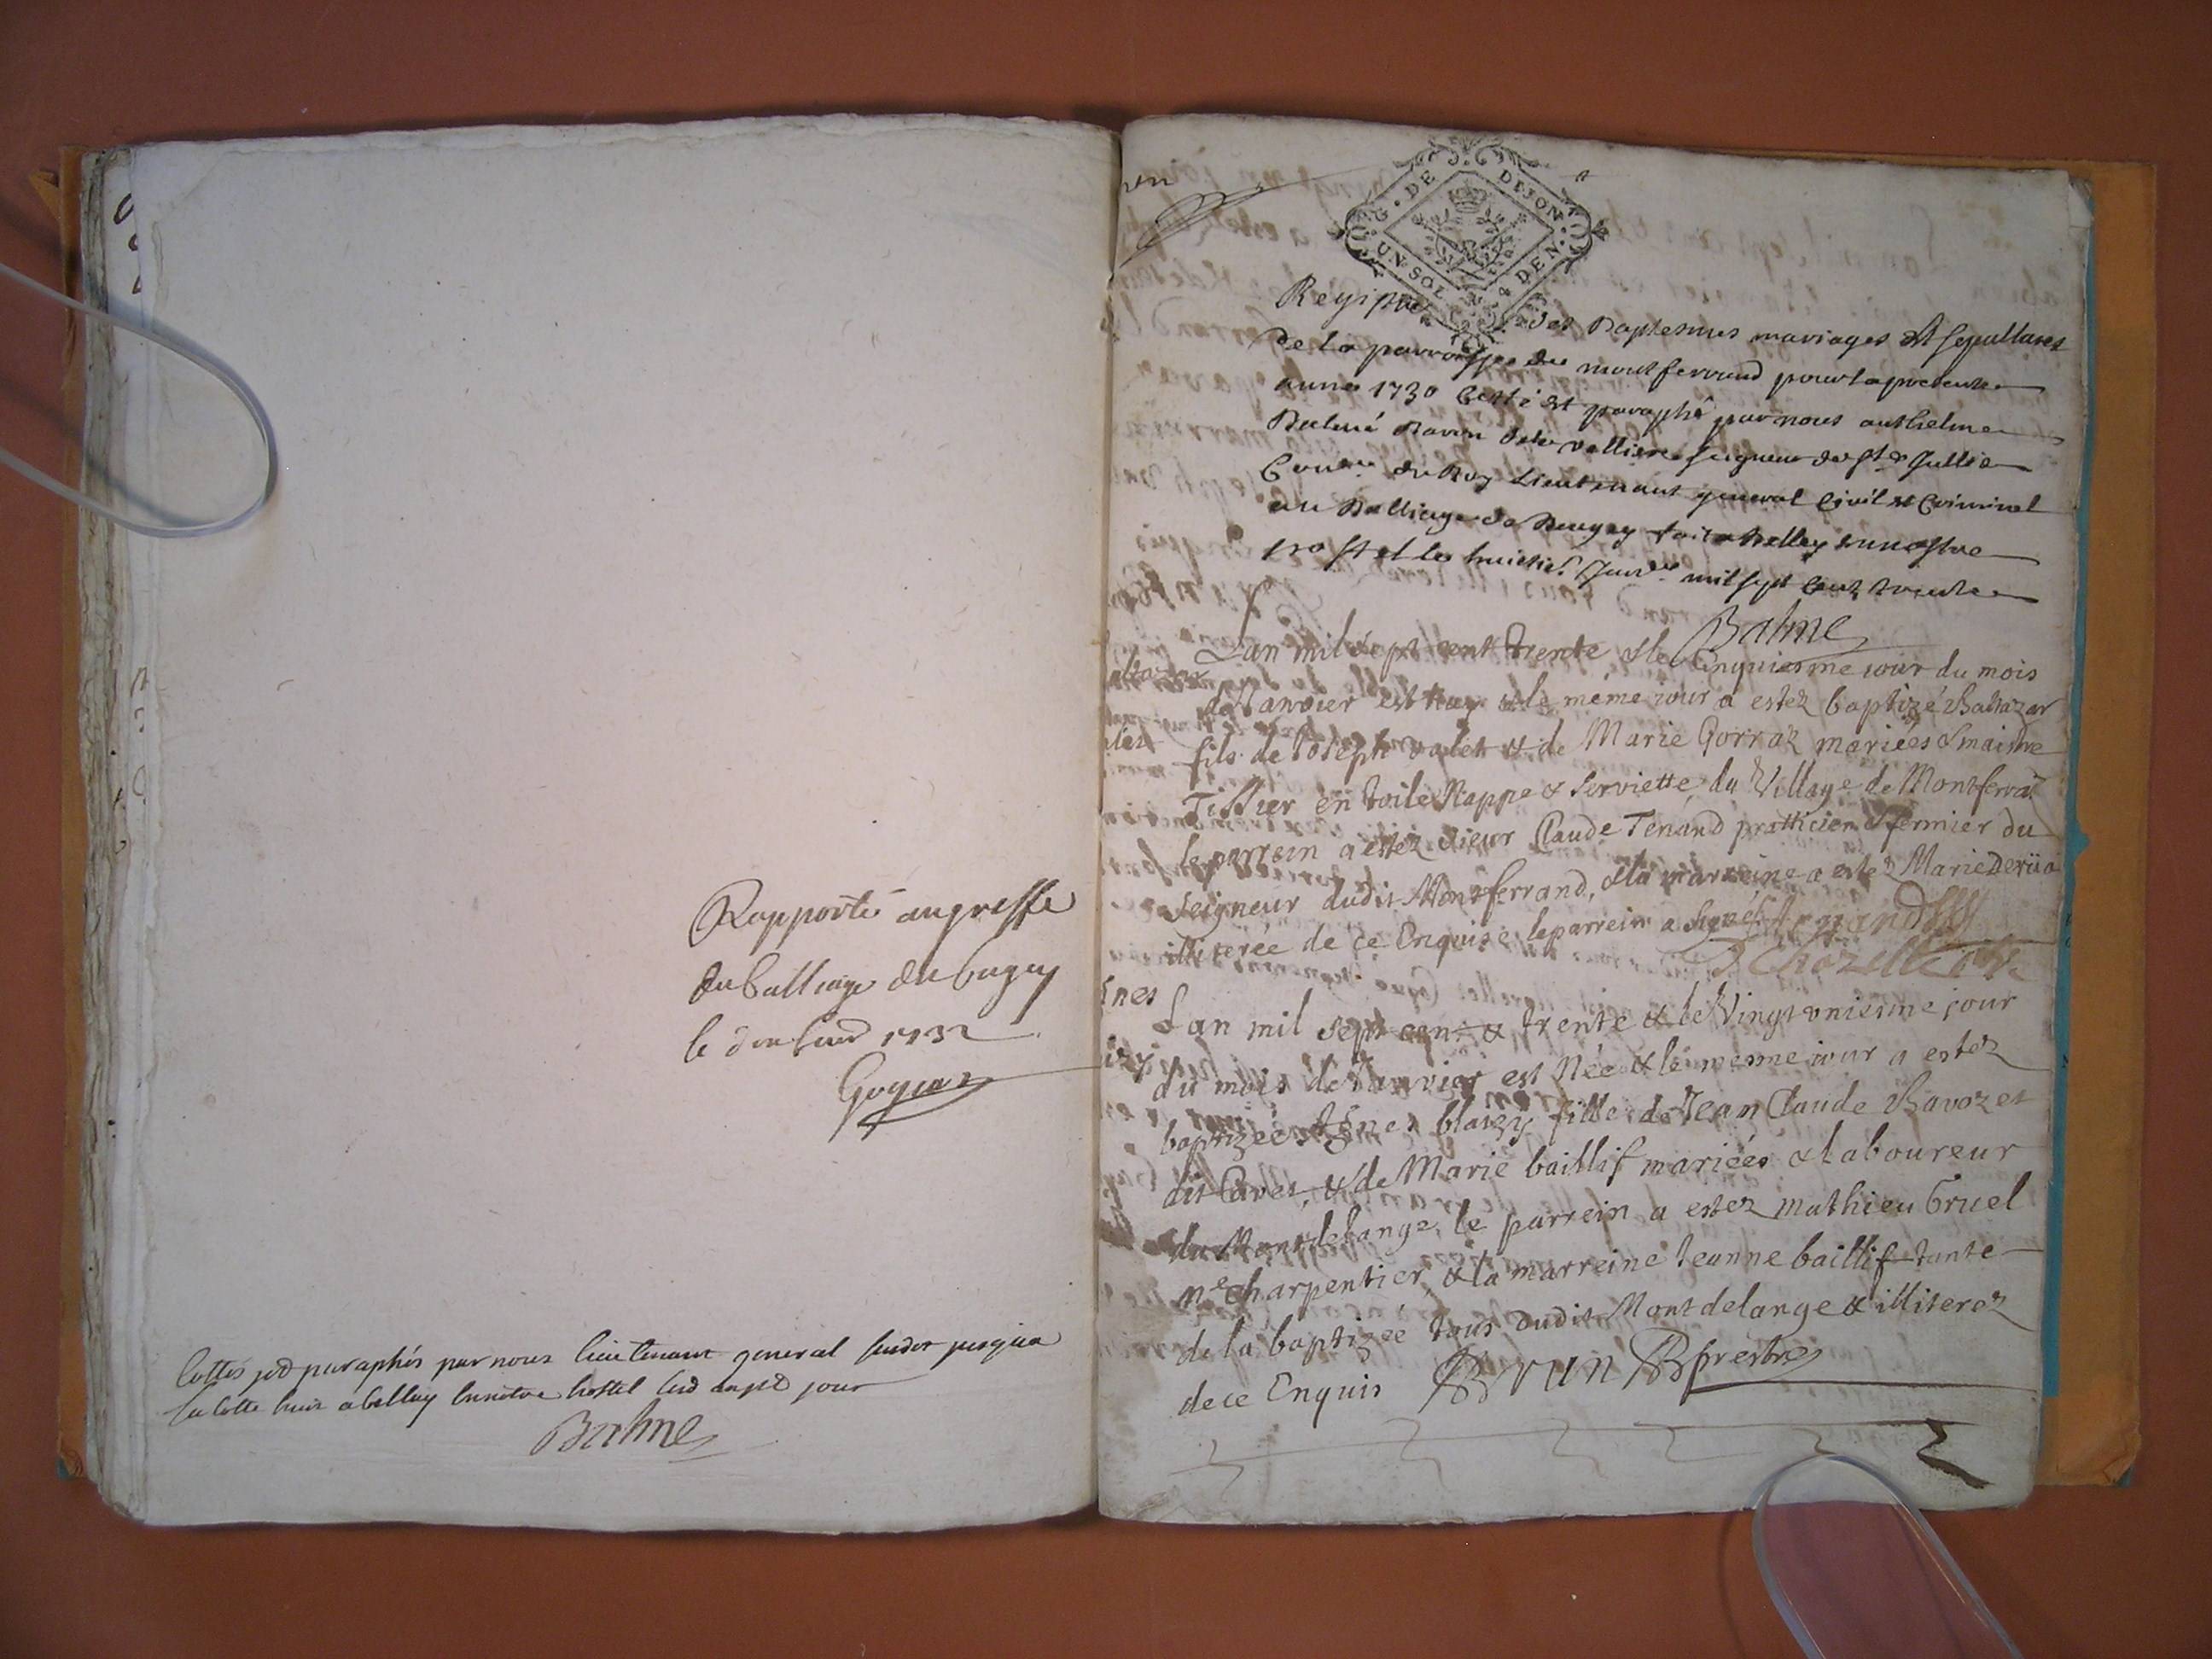 Rapporté au greffe
du balliage du bugey
le 1732
Goyna
Cottés et paraphés par nous lieutenant general susdit jusqua
la cotte huit a belley en notre hostel lesd an et jour
Balme
un
G. DE DIJON
UN SOL 4 DEN
Registre des Baptesmes mariages et sepultures
de la parroisse de montferrand pour la presente
année 1730 Cotté et paraphé par nous anthelme
Balme Baron de valliere seigneur de Ste Jullie
Conser du Roy Lieutenant general Civil et Criminel
au Balliage de Beugey fait a belley en nostre
hostel le huictie Janvr mil sept cent trente
Balme
Lan mil sept cent trente & le Cinquiesme iour du mois
de Ianvier est nay & le même iour a estez baptizé Baltazar
fils de Ioseph valet & de Marie Gorraz mariées & maistre
Tissier en toile Nappe & Serviette du Village de Montferrat
le parrein a estez sieur Claude Tenand pratticien & fermier du
Seigneur dudit Montferrand, & la marreine a estez Marie Derüa
illiterée de ce Enquise le parrein a signé Tenand
Lan mil sept cent & trente & le Vingt vniesme jour
du mois de Ianvier est Née & le mesme iour a estez
baptizée Agnes blaizy fille de Jean Claude Ravoz et
dit Cavet, & de Marie baillif mariées & laboureur
du Montdelange, le parrein a estez mathieu Gruel
me charpentier, & la marreine Jeanne baillif tante
de la baptizée tous dudit Mont delange & illiterez
de ce Enquis Brun prestre